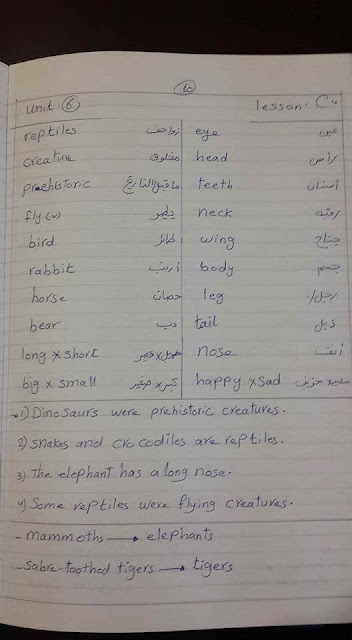 10
Unit 6 lesson: C
reptiles زواحف eye عين
creature مخلوق head رأس
prehistoric ما قبل التاريخ teeth أسنان
fly (v) يطير neck رقبة
bird طائر wing جناح
rabbit أرنب body جسم
horse حصان leg رجل
bear دب tail ذيل
long x short طويل x قصير nose أنف
big x small كبير x صغير happy x sad سعيد x حزين
1) Dinosaurs were prehistoric creatures.
2) snakes and crocodiles are reptiles.
3) The elephant has a long nose.
4) Some reptiles were flying creatures.
- mammoths → elephants
- Sabre-toothed tigers → tigers